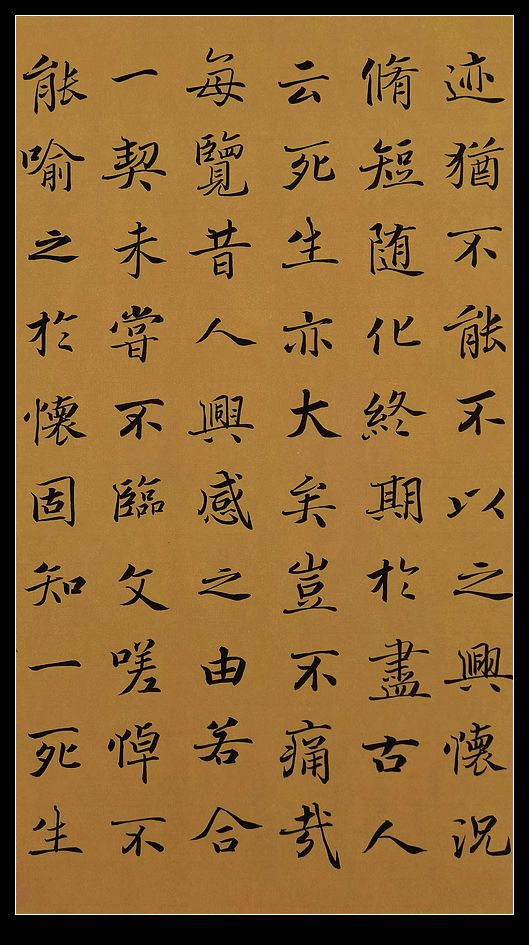 迹猶不能不以之興懷况
脩短随化終期於盡古人
云死生亦大矣豈不痛哉
每覽昔人興感之由若合
一契未嘗不臨文嗟悼不
能喻之於懷固知一死生